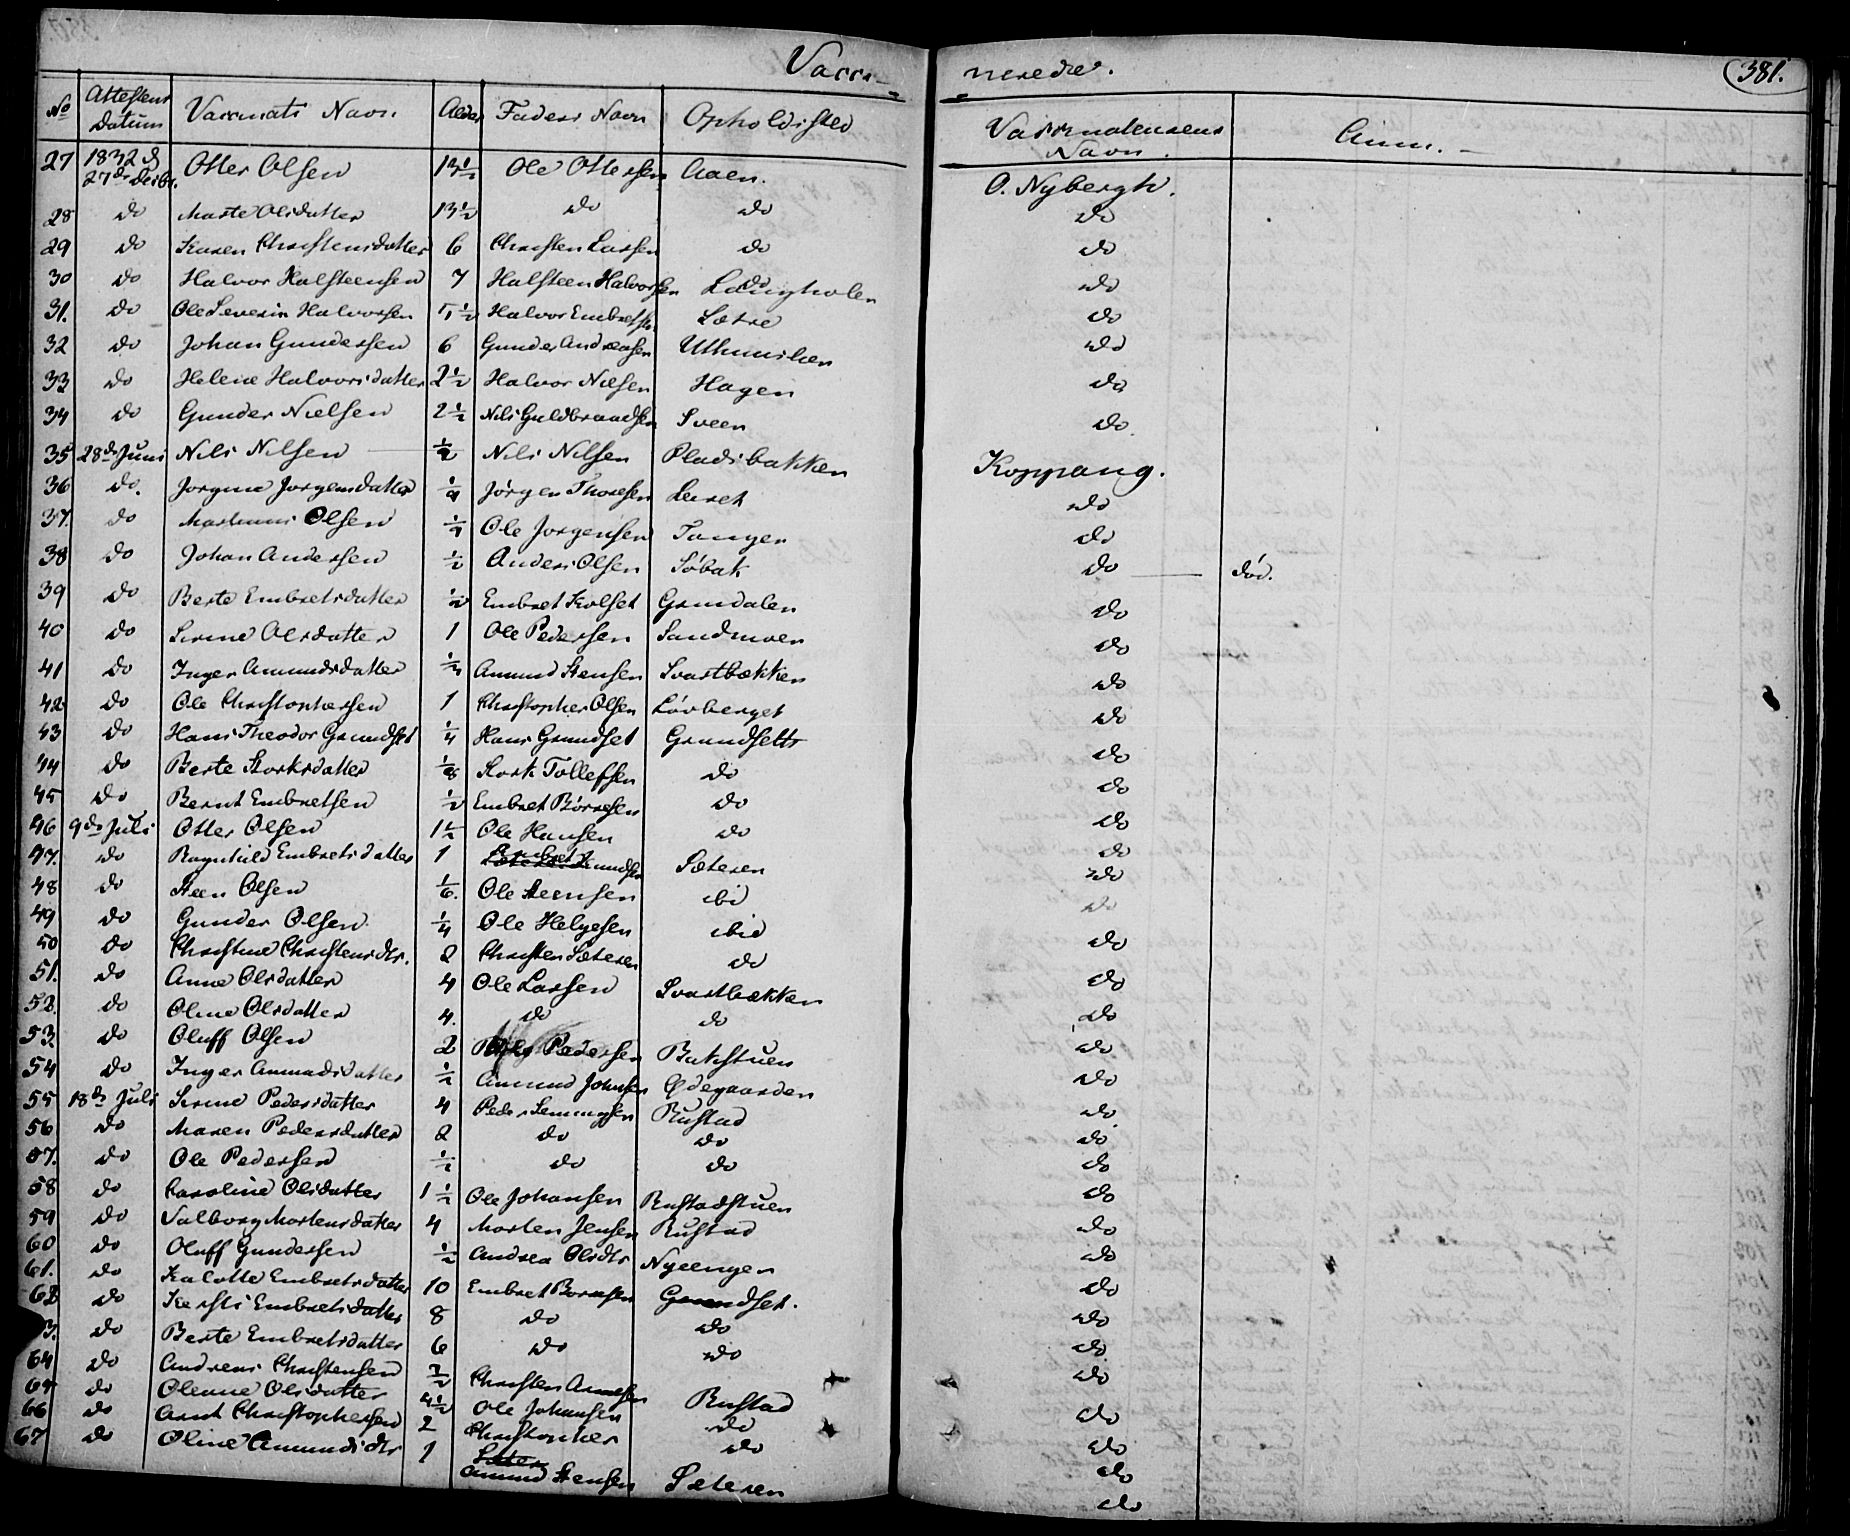 Vacci- nerede. 381.
No Attestens Datum Vaccinats Navn Alder Faders Navn Opholdsted Vaccinateurens Navn. Anm.
27 1832 d 27de Decbr. Otter Olsen 13½ Ole Ottersen Aaen. O. Nybergh.
28 do Marte Olsdatter 13½ do do do
29 do Karen Christensdatter 6 Christen Larsen do do
30 do Halvor Halsteensen 7 Halsteen Halvorsen Langholen do
31. do Ole Severin Halvorsen 5½ Halvor Embretsen Lætre do
32 do Johan Gundersen 6 Gunder Andreasen do
33 do Helene Halvorsdatter 2½ Halvor Nilsen Hagen do
34 do Gunder Nielsen 2½ Nils Guldbrandsen Sveen do
35 28de Juni Nils Nilsen ½ Nils Nilsen Pladsbakken Koppang.
36 do. Jørgine Jørgensdatter ¼ Jørgen Thoresen Leiret do
37. do Olsen ¼ Ole Jørgensen Tangen do
38 do Johan Andersen ½ Anders Olsen Søbak do dód.
39 do Berte Embretsdatter ½ Embret Kolset Grindalen do
40 do Serine Olsdatter 1 Ole Pedersen Sandmoen do
41 do Inger Amundsdatter ½ Amund Stensen Svartbækken do
42 do Ole Christophersen 1 Christopher Olsen Lövberget do
43 do Hans Theodor Grundset ¼ Hans Grundset Grundsett do
44 do Berte Storksdatter ⅛ Stork Tollefsen do do
45 do Bernt Embretsen ½ Embret Börresen do do
46 9de Juli Otter Olsen 1½ Ole Hansen do do
47. do Ragnhild Embretsdatter 1 Embret Amundsen Sæteren do
48 do Steen Olsen ⅙. Ole Steensen ibi do
49 do Gunder Olsen ¼ Ole Helgesen ibid do
50 do Christine Christensdtr. 2 Christen Sæteren do do
51. do Anne Olsdatter 4 Ole Larsen Svartbækken do
52. do Oline Olsdatter 4. do do do
53. do Oluff Olsen 2 Pedersen Bakstuen do
54 do Inger Amundsdatter ½ Amund Johnsen Ødegaarden do
55 18de Juli Serine Pedersdatter 4 Peder Semmingsen Rustad do
56 do Maren Pedersdatter 2 do do do
57. do Ole Pedersen ½ do do do
58 do Caroline Olsdatter 1½ Ole Johansen Rustadstuen do
59 do Valborg Mortensdatter 4 Morten Jensen Rustad do
60 do Oluff Gundersen ½ Andrea Olsdtr Nyeengen do
61. do Kalotte Embretsdatter 10 Embret Börresen Grundset. do
62 do Kersti Embretsdatter 8 do do do
3. do Berte Embretsdatter 6 do do do
64 do Andreas Christensen ½ Christen Arnesen Rustad do
65 do Oleane Olsdatter 4½ Ole Johansen do do
66 do Arnt Christophersen 2 Christopher do do
67 do Oline Amundsdtr 1 Amund Stensen Sæteren do